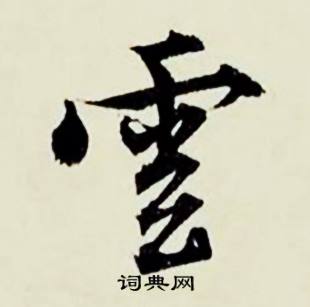 雲
词典网